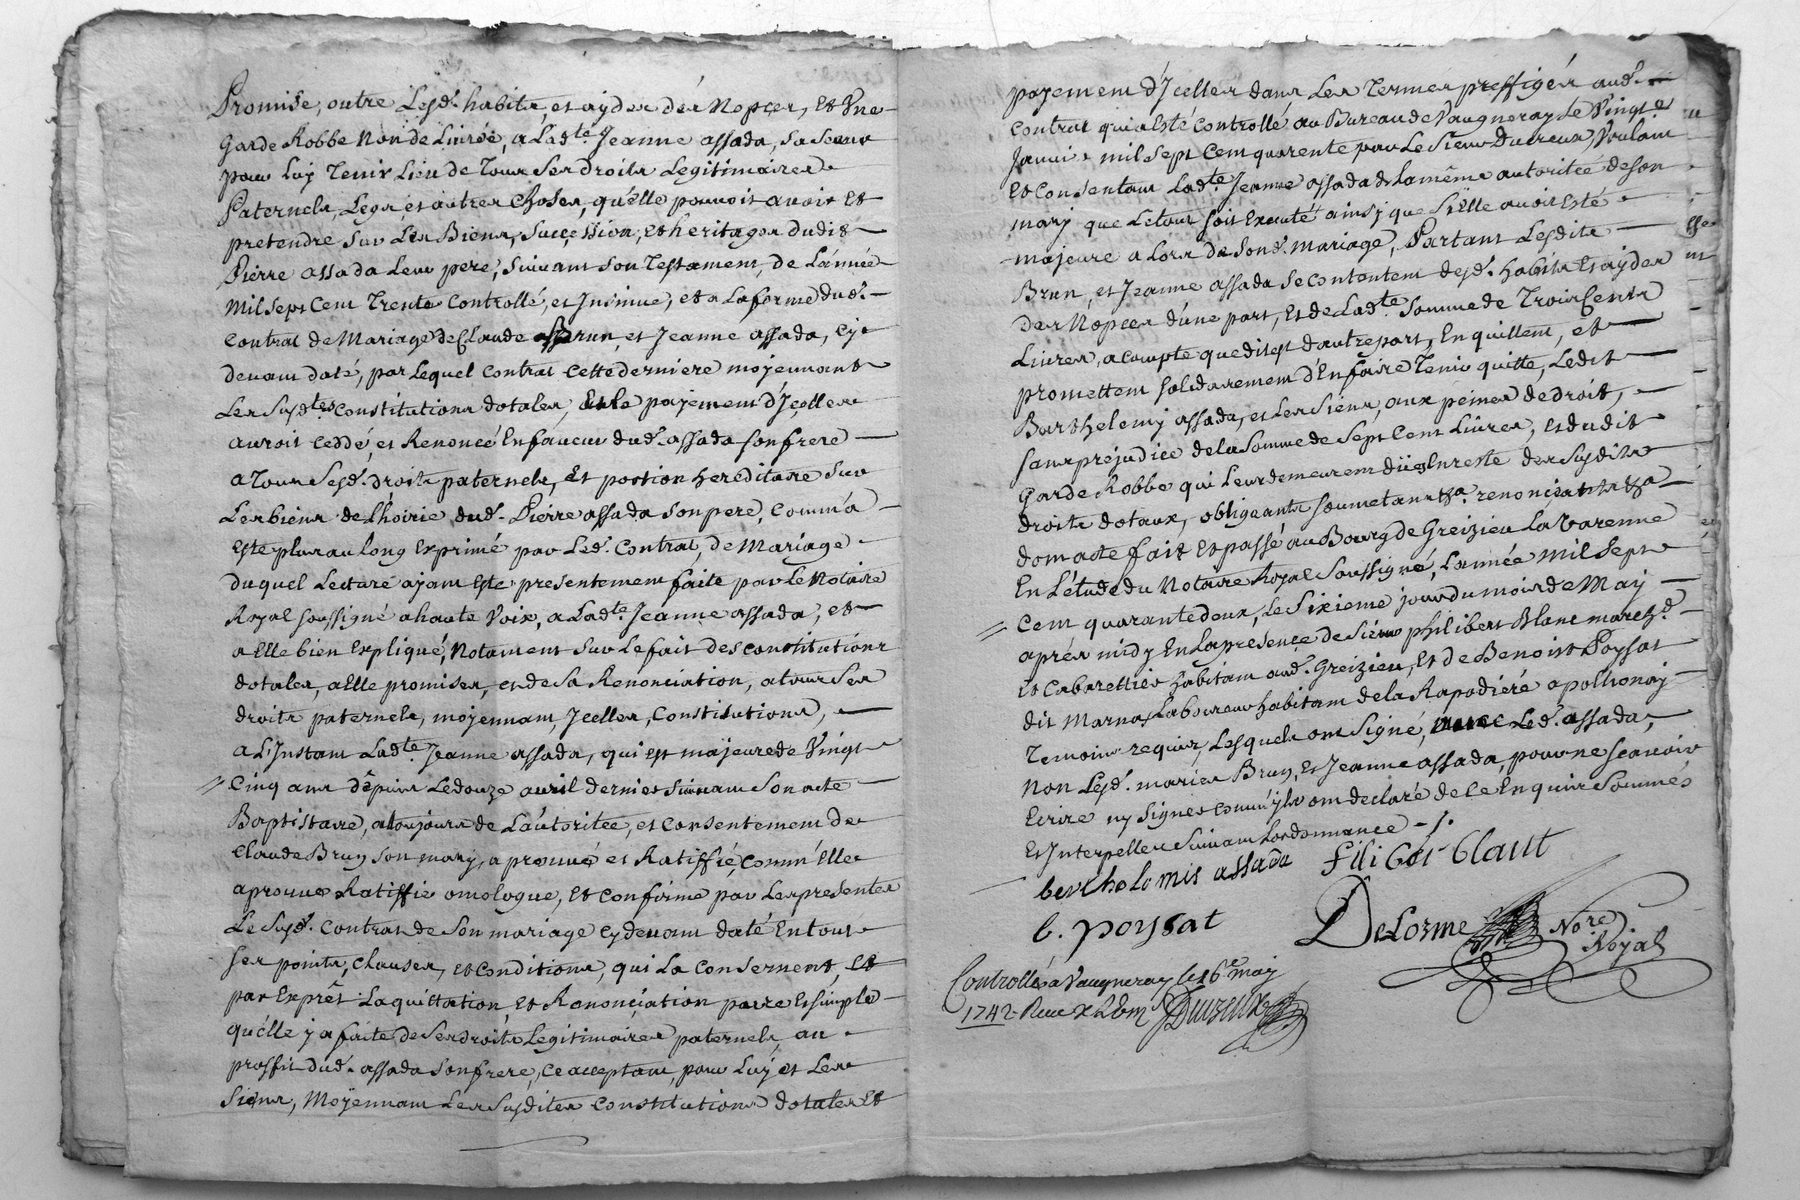 Promise, outre Lesd. habits, et ayder des Nopces, Et Une
Garde Robbe Non de Livrée, a Lad.te Jeanne assada, sa seur
pour Luy Tenir Lieu de Tous Ses droits Legitimaires
Paternels, Legs, et autres Choses, qu'Elle pouvoit avoir Et
pretendre Sur Les Biens, Succession, et heritages dudit
Pierre assada Leur pere, Suivant Son Testament, de L'année
Mil Sept Cent Trente Controllé, et Insinué, et a La forme dud.
Contrat de Mariage de Claude Brun, et Jeanne assada, Cy
devant daté, par Lequel Contrat Cette derniere moyennant
Les Susd.tes Constitutions dotales, Et le payement d'Jcelles
auroit Ceddé, et Renoncé En faveur dud. assada Son frere
a Tous Sesd. droits paternels, Et portion hereditaire Sur
Les biens de L'hoirie dud. Pierre assada Son pere, Comm'a
Esté plus au long Exprimé par Led. Contrat, de Mariage
duquel Lecture ayant Esté presentement faite par Le Notaire
Royal Soussigné a haute Voix, a Lad.te Jeanne assada, et
a Elle bien Expliqué, Notament Sur Le fait des constitutions
dotales, a Elle promises, et de Sa Renonciation, a tous Ses
droits paternels, moyennant, Jcelles, Constitutions,
a L'Instant Lad.te Jeanne assada, qui Est majeure de Vingt
Cinq ans dépuis Le douze avril dernier Suivant Son acte
Baptistaire, a toujours de L'autoritée, et Consentement de
Claude Brun Son mary, aprouvé et Ratiffié, Comm'Elle
aprouve Ratiffie omologue, Et Confirme par Les presentes
Le Susd. Contrat de Son mariage Cy devant daté En tous
Ses points, Clauses, et Conditions, qui La Consernent, Et
par Exprés La quittation, Et Renonciation pure Et Simple
qu'Elle y a faite de Ses droits Legitimaires paternels, au
proffit dud. assada Son frere, Ce acceptant, pour Luy et Les
Siens, Moyennant Les Susdites Constitutions dotales Et
payement d'Jcelles dans Les Termes preffigés aud.
Contrat qui a Esté Controllé au Bureau de Vaugneray le Vingt
Janvier mil Sept Cent quarente par Le Sieur Dutreux, Voulant
Et Consentant Lad.te Jeanne assada de la même autoritée de Son
mary que Le tout Soit Executé ainsy que Si Elle avoit Esté
majeure a Lors de Sond. mariage, Partant Lesdits
Brun, et Jeanne assada Se Contentent desd. habits Et ayder
des Nopces d'une part, Et de Lad.te Somme de Trois Cents
Livres, a Compte que dit est d'autre part, En quittent, et
promettent Solidairement d'En faire Tenir quitte, Ledit
Barthelemy assada, et Les Siens, aux peines de droit,
Sans prejudice de la Somme de Sept Cent Livres, et dudit
Garde Robbe qui Leur demeurent düe En reste des Susdits
droits dotaux, obligeants Soumetants &a. renonciants &a
dont acte fait Et passé au Bourg de Greizieu La Varenne
En L'étude du Notaire Royal Soussigné, L'année Mil Sept
Cent quarante deux, Le Sixieme jour du mois de May
aprés midy En La presence de Sieur philibert Blanc march.d
Et Cabarettier habitant aud. Greizieu, Et de Benoist Poysat
dit Marnas Laboureur habitant de la Rapodiéré a pollionay
Temoins requis, Lesquels ont Signé, avec Led. assada,
Non Lesd. mariés Brun, et Jeanne assada, pour ne Scavoir
Ecrire ny Signer Comm'jls ont declaré de Ce Enquis Sommés
Et Interpellés Suivant Lordonnance
bertholomis assada Filiber blant
b. poysat DeLorme No.re
Royal
Controllé a Vaugneray le 16e may
1742. Dutreux